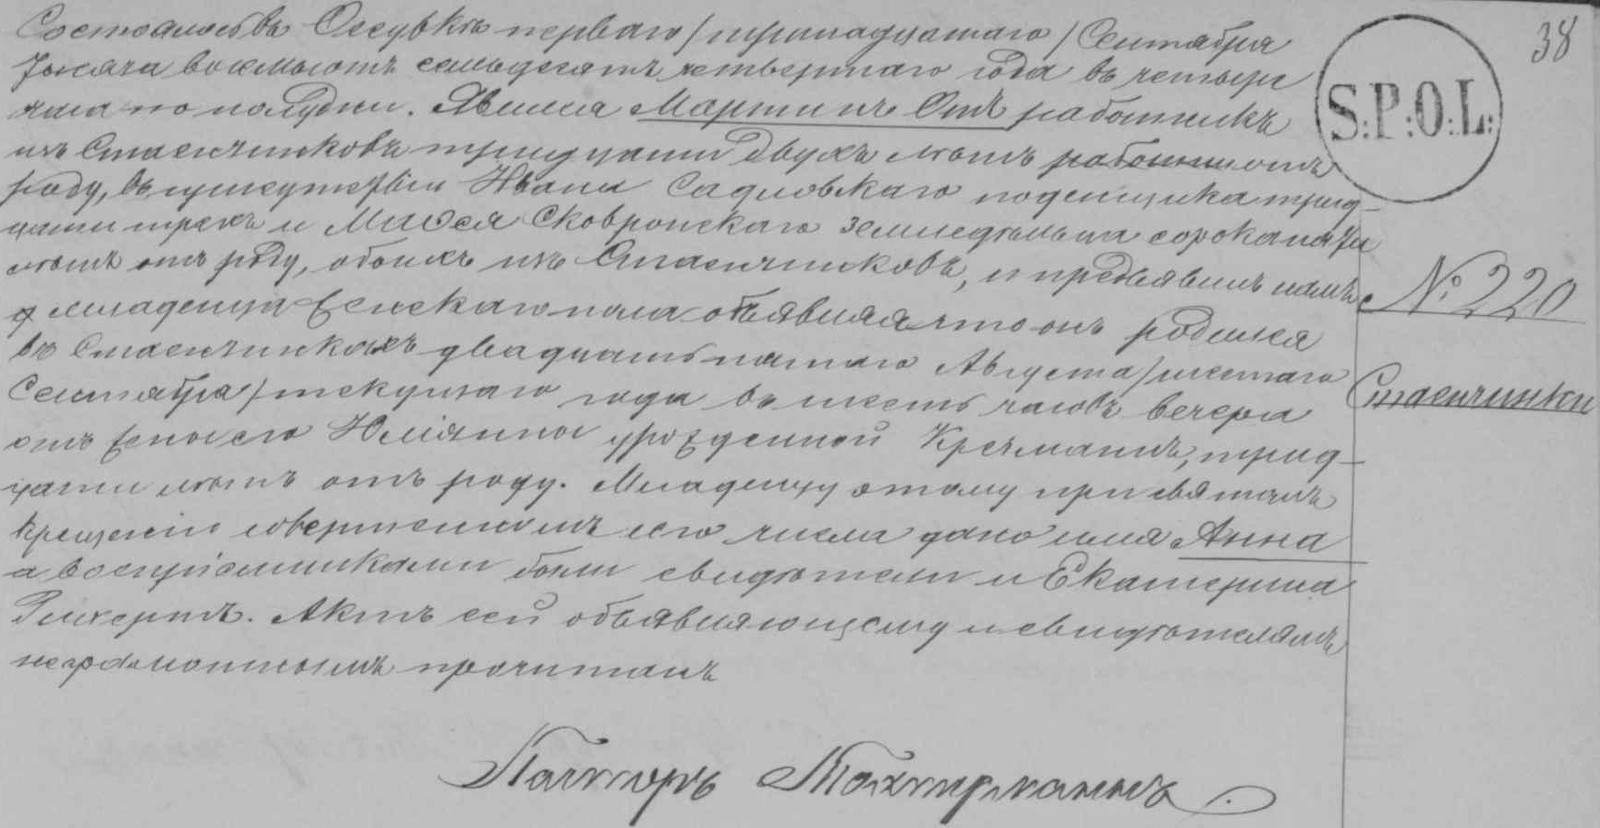 38
S.P.O.L.
Состоялось въ Оссувкѣ перваго/тринадцатаго/Сентября
тысяча восемьсотъ семьдесятъ четвертаго года въ четыре
часа по полудни. Явился Мартинъ Отъ работникъ
изъ Стаенчинковъ тридцати двухъ лѣтъ работни отъ
роду, въ присутствіи Ивана Садловскаго поденщика трид-
цати трехъ и Матѳея Сковронскаго земледѣльца сорока пяти
лѣтъ отъ роду, обоихъ изъ Стаенчинковъ, и предъявилъ намъ
младенца женскаго пола объявляя что онъ родился
въ Стаенчинкахъ двадцать пятаго Августа/шестаго
Сентября/текущаго года въ шесть часовъ вечера
отъ жены его Юліянны урожденной Кречманъ, трид-
цати лѣтъ отъ роду. Младенцу этому при святомъ
крещеніи совершенномъ сего числа дано имя Анна
а воспріемниками были свидѣтели и Екатерина
Рихертъ. Актъ сей объявляющему и свидѣтелямъ
неграмотнымъ прочитанъ
№ 220
Стаенчинки
Пасторъ